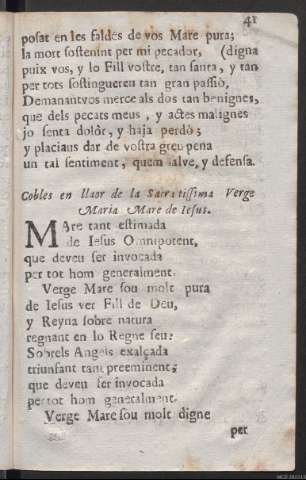 41
posat en les faldes de vos Mare pura;
la mort sostenint per mi pecador, (digna
puix vos, y lo Fill vostre, tan santa, y tan
per tots sostingueren tan gran passiò,
Demanantvos merce als dos tan benignes,
que dels pecats meus, y actes malignes
jo senta dolòr, y haja perdò;
y placiaus dar de vostra greu pena
un tal sentiment, quem salve, y defensa.
Cobles en llaor de la Sacratissima Verge
Maria Mare de Iesus.
MAre tant estimada
de Iesus Omnipotent,
que deveu ser invocada
per tot hom generalment.
Verge Mare sou molt pura
de Iesus ver Fill de Deu,
y Reyna sobre natura
regnant en lo Regne seu:
Sobrels Angels exalçada
triunfant tant preeminent;
que deveu ser invocada
per tot hom generalment.
Verge Mare sou molt digne
per